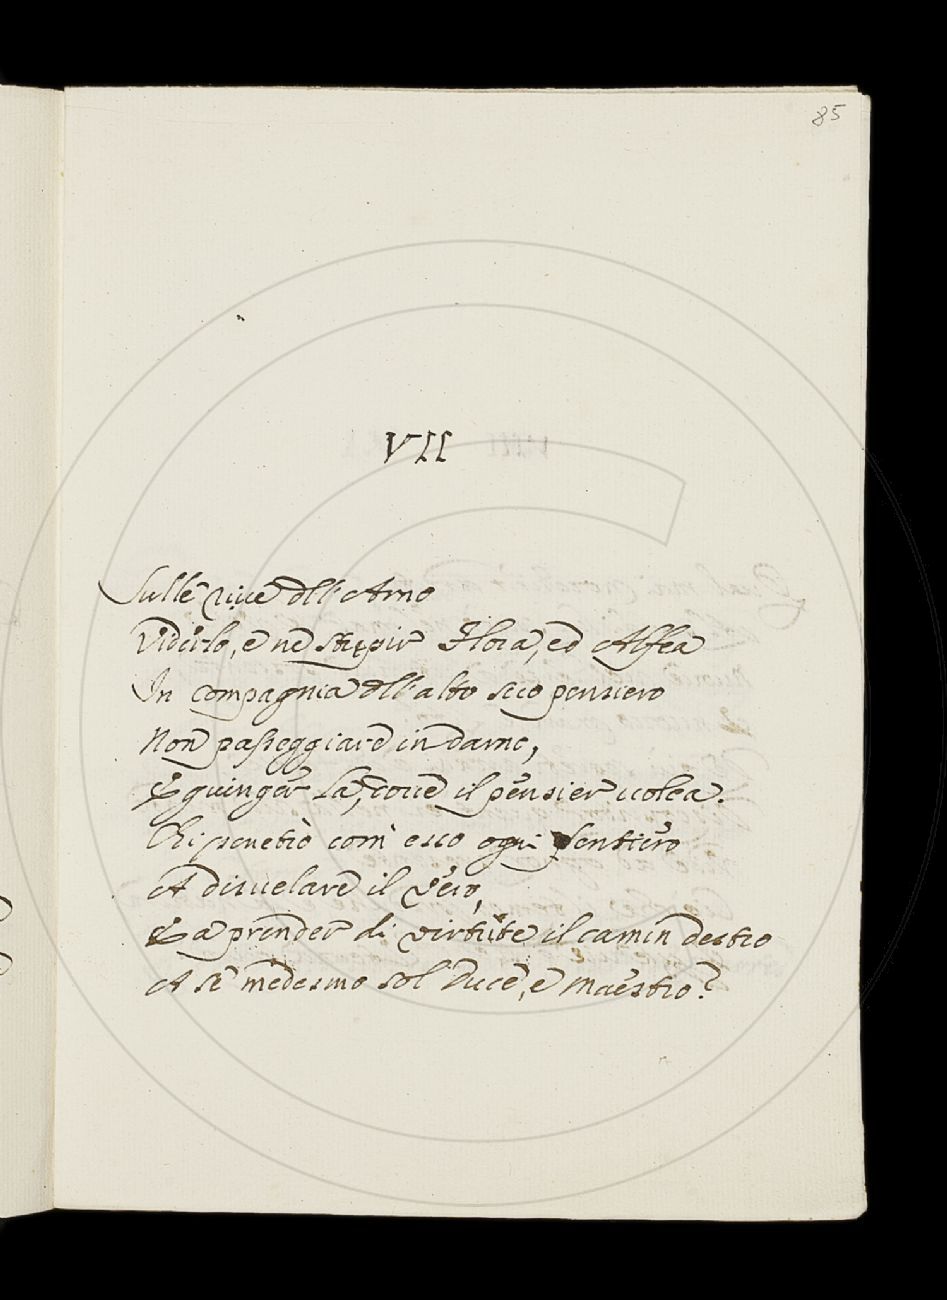 85
VII
Sulle rive dell'Arno
Vidirlo, e ne stupir Flora, ed Alfea
In compagnia dell'alto suo pensiero
Non passeggiare in darno,
E giunger là, dove il pensier volea.
Chi penetrò com' esso ogni sentiero
A disvelare il vero,
E a prender di virtute il camin destro
A sè medesmo sol Duce, e Maestro?